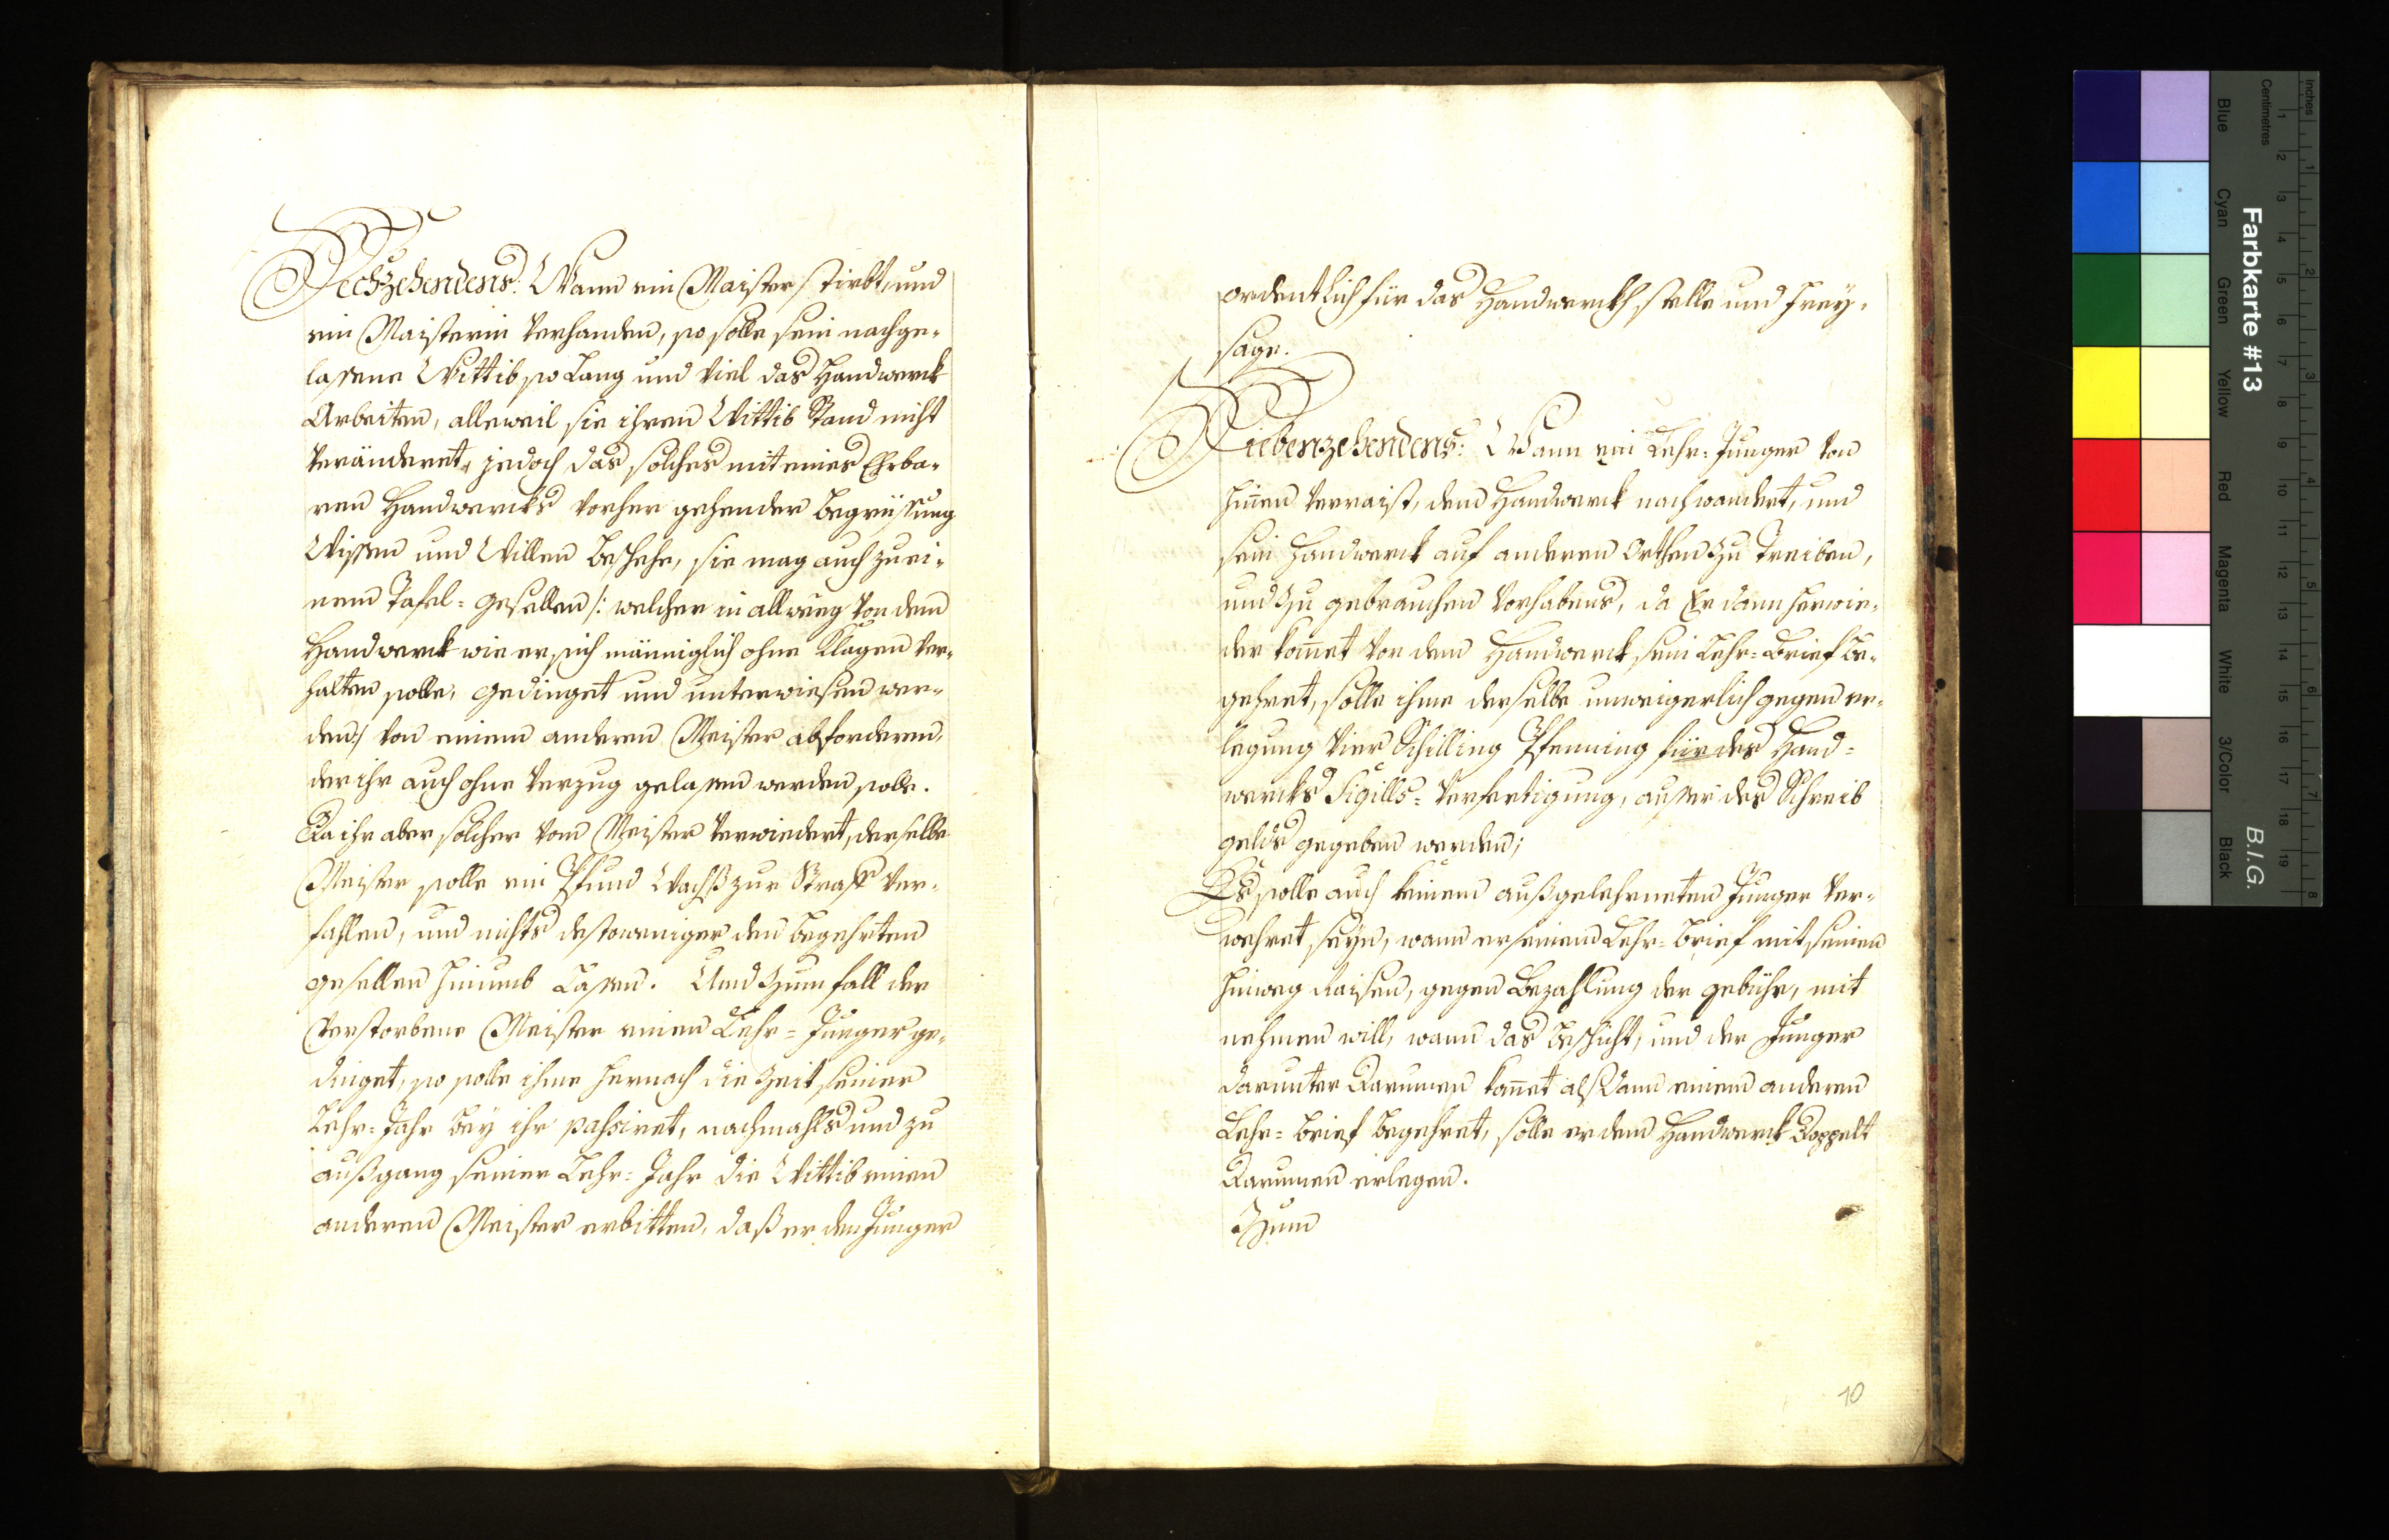 Sechzehendens: Wann ein Maister stirbt, und
ein Maisterin verhanden, so solle sein nachge-
lassene Wittib so lang und viel das Handwerck
Arbeiten, alleweil sie ihren Wittib Stand nicht
verändert, jedoch das solches mit eines Ehrba-
ren Handwercks vorher gehender Begrüssung
Wissen und Willen beschehe, sie mag auch zu ei-
nem Tafel=gesellen /: welcher in allweeg von dem
Handwerck wie er sich männiglich ohne Klagen ver-
halten solle, gedinget und unterwiesen wer-
den :/ von einem anderen Meister abforderen,
der ihr auch ohne Verzug gelassen werden solle.
Da ihr aber solcher vom Meister verwiedert, derselbe
Meister solle ein Pfund Wachß zur Straff ver-
fahlen, und nichts destoweniger den begehrten
gesellen hinumb Lassen. Und zum fall der
verstorbene Meister einen Lehr=Junger ge-
dinget, so solle ihme hernach die Zeit seiner
Lehr=Jahr bey ihr passiret, nachmahls und zu
außgang seiner Lehr=Jahr die Wittib einen
anderen Meister erbitten, daß er den Junger
ordentlich für das Handwerckh stelle und frey-
sage.
Siebenzehendens: Wann ein Lehr=Junger von
hinen verraist, dem Handwerck nachwandert, und
sein Handwerck auf anderen Orthen zu Treiben,
und zu gebrauchen vorhabens, da Er dann herwie-
der komet von dem Handwerck sein Lehr=Brief be-
gehret, solle ihme derselbe unweigerlich gegen er-
legung Vier Schilling Pfenning für des Hand=
wercks Sigills=Verfertigung, ausser des Schreib
gelds gegeben werden;
Es solle auch keinem außgelehrneten Junger ver-
wehret seyn, wann er seinem Lehr=Brief mit seinen
hinweg Raisen, gegen Bezahlung der gebühr, mit
nehmen will, wann das beschicht, und der Junger
darunter Darumen komet alßdann einem anderen
Lehr=Brief begehret, solle er dem Handwerck Doppelt
Darumen erlegen.
Zum
10
Inches
Centimetres
Farbkarte #13
B.I.G.
Blue
Cyan
Green
Yellow
Red
Magenta
White
3/Color
Black